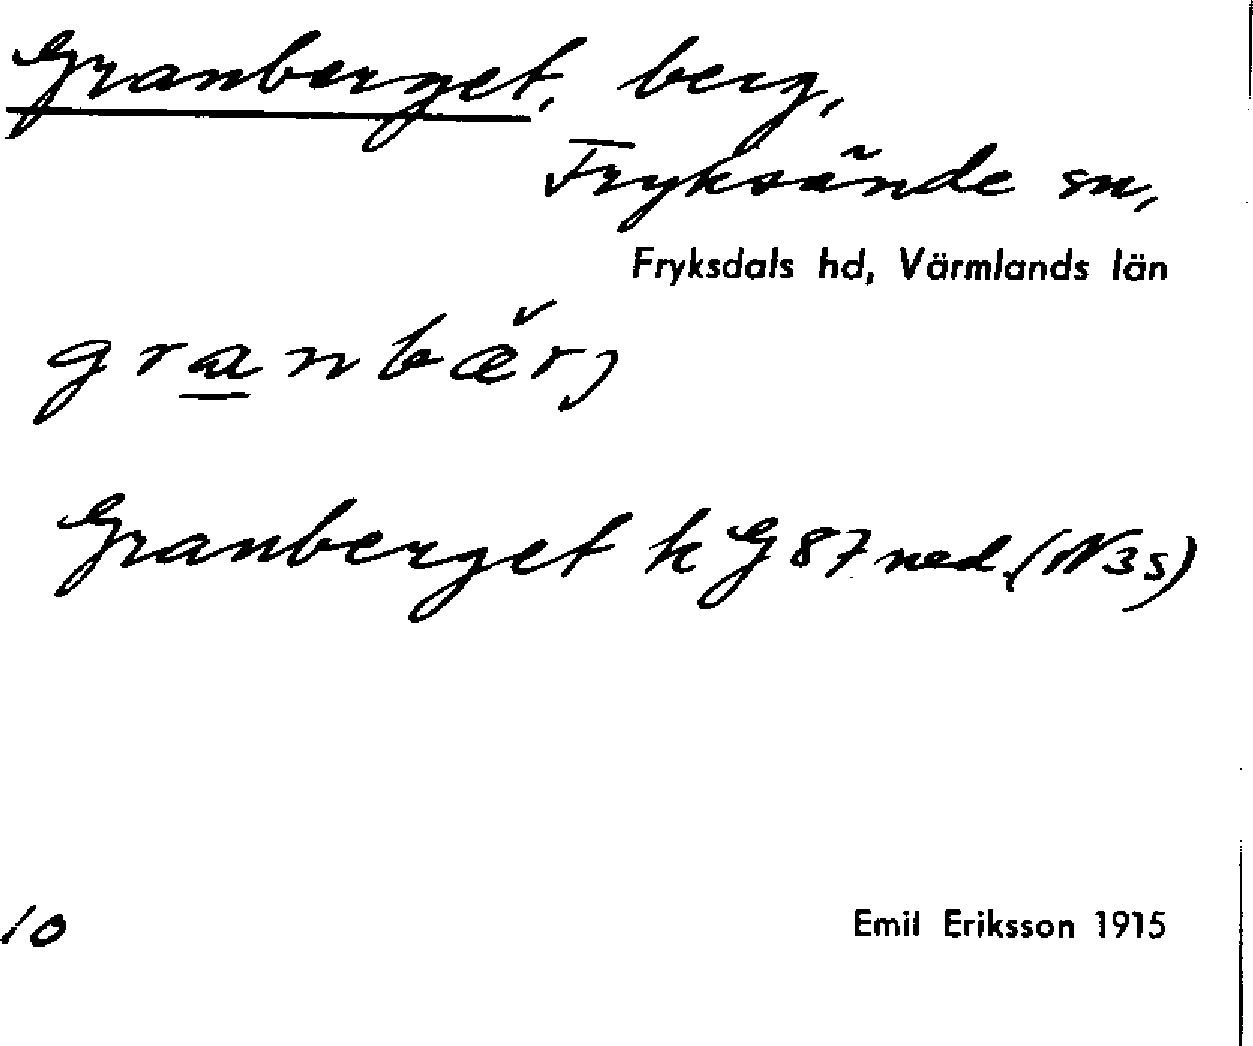 Granberget, berg,
Fryksände sn,
Fryksdals hd, Värmlands län
granbær̆j
Granberget k G 87 ned. (N3s)
10
Emil Eriksson 1915